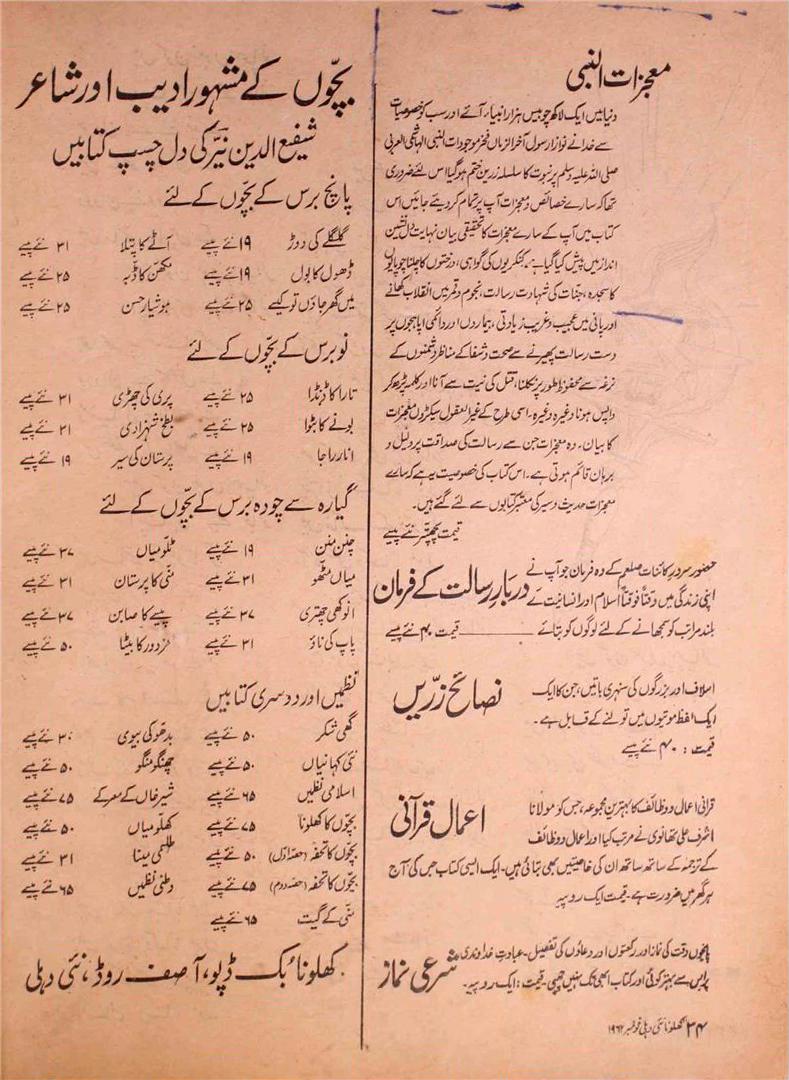 معجزات النبی
دنیا میں ایک لاکھ چوبیس ہزار انبیاء آئے اور سب کو خصوصیات
سے خدا نے نوازا رسول آخر الزماں فخر موجودات النبی الہاشمی العربی
صلی اللہ علیہ وسلم پر نبوت کا سلسلہ زرین ختم ہو گیا اس لئے ضروری
تھا کہ سارے خصائص و معجزات آپ پر تمام کر دیئے جائیں اس
کتاب میں آپ کے سارے معجزات کا تحقیقی بیان نہایت دل نشین
انداز میں پیش کیا گیا ہے۔ کنکریوں کی گواہی، درختوں کا چلنا چوپایوں
کا سجدہ، جنات کی شہادت رسالت، نجوم و قمر میں انقلاب کھانے
اور پانی میں عجیب و غریب زیادتی، بیماروں اور دائمی اپاہجوں پر
دست رسالت پھیرنے سے صحت و شفا کے مناظر دشمنوں کے
نرغہ سے محفوظ طور پر نکلنا، قتل کی نیت سے آنا اور کلمہ پڑھ کر
واپس ہونا وغیرہ وغیرہ۔ اسی طرح کے محیر العقول سیکڑوں معجزات
کا بیان۔ وہ معجزات جن سے رسالت کی صداقت پر دلیل و
برہان قائم ہوتی ہے۔ اس کتاب کی خصوصیت یہ ہے کہ سارے
معجزات حدیث و سیر کی معتبر کتابوں سے لئے گئے ہیں۔
قیمت پچھتر نئے پیسے
دربارِ رسالت کے فرمان
حضور سردرِ کائنات صلعم کے وہ فرمان جو آپ نے
اپنی زندگی میں وقتاً فوقتاً اسلام اور انسانیت کے
بلند مراتب کو سمجھانے کے لئے لوگوں کو بتائے ـــــ قیمت ۴۰ نئے پیسے
نصائح زرّیں
اسلاف اور بزرگوں کی سنہری باتیں، جن کا ایک
ایک لفظ موتیوں میں تولنے کے قابل ہے۔
قیمت: ۴۰ نئے پیسے
اعمال قرآنی
قرآنی اعمال و وظائف کا بہترین مجموعہ، جس کو مولانا
اشرف علی تھانوی نے مرتب کیا اور اعمال و وظائف
کے ترجمہ کے ساتھ ساتھ ان کی خاصیتیں بھی بتائی ہیں۔ ایک ایسی کتاب جس کی آج
ہر گھر میں ضرورت ہے۔ قیمت ایک روپیہ
شرعی نماز
پانچوں وقت کی نماز اور رکعتوں اور دعاؤں کی تفصیل۔ عبادتِ خداوندی
پر اس سے بہتر کوئی اور کتاب ابھی تک نہیں چھپی۔ قیمت: ایک روپیہ۔
۳۴ کھلونا نئی دہلی نومبر ۱۹۶۲ء
بچّوں کے مشہور ادیب اور شاعر
شفیع الدین نیّر کی دل چسپ کتابیں
پانچ برس کے بچّوں کے لئے
گلگلے کی دوڑ ۱۹ نئے پیسے آٹے کا پتلا ۳۱ نئے پیسے
ڈھول کا بول ۱۹ نئے پیسے مکھن کا ڈبہ ۲۵ نئے پیسے
میں گھر جاؤں تو کیسے ۲۵ نئے پیسے ہوشیار حسن ۲۵ نئے پیسے
نو برس کے بچّوں کے لئے
تارا کا ڈنڈا ۲۵ نئے پیسے پری کی چھڑی ۳۱ نئے پیسے
بونے کا بٹوا ۲۵ نئے پیسے بطخ شہزادی ۳۱ نئے پیسے
انار راجا ۱۹ نئے پیسے پرستان کی سیر ۱۹ نئے پیسے
گیارہ سے چودہ برس کے بچّوں کے لئے
چنن منن ۱۹ نئے پیسے ٹلّو میاں ۳۷ نئے پیسے
میاں مٹھو ۳۱ نئے پیسے منّی کا پرستان ۳۱ نئے پیسے
انوکھی چھتری ۳۷ نئے پیسے پیسے کا صابن ۳۷ نئے پیسے
پاپ کی ناؤ ۳۱ نئے پیسے مزدور کا بیٹا ۵۰ نئے پیسے
نظمیں اور دوسری کتابیں
گھی شکر ۵۰ نئے پیسے بدھو کی بیوی ۳۰ نئے پیسے
نئی کہانیاں ۵۰ نئے پیسے چھنگو منگو ۵۰ نئے پیسے
اسلامی نظمیں ۶۵ نئے پیسے شیر خاں کے معرکے ۷۵ نئے پیسے
بچّوں کا کھلونا ۷۵ نئے پیسے کھلّو میاں ۵۰ نئے پیسے
بچّوں کا تحفہ (حصّہ اوّل) ۵۰ نئے پیسے طلسمی مینا ۳۱ نئے پیسے
بچّوں کا تحفہ (حصّہ دوم) ۷۵ نئے پیسے وطنی نظمیں ۶۵ نئے پیسے
منّی کے گیت ۶۵ نئے پیسے
کھلونا بک ڈپو، آصف روڈ، نئی دہلی